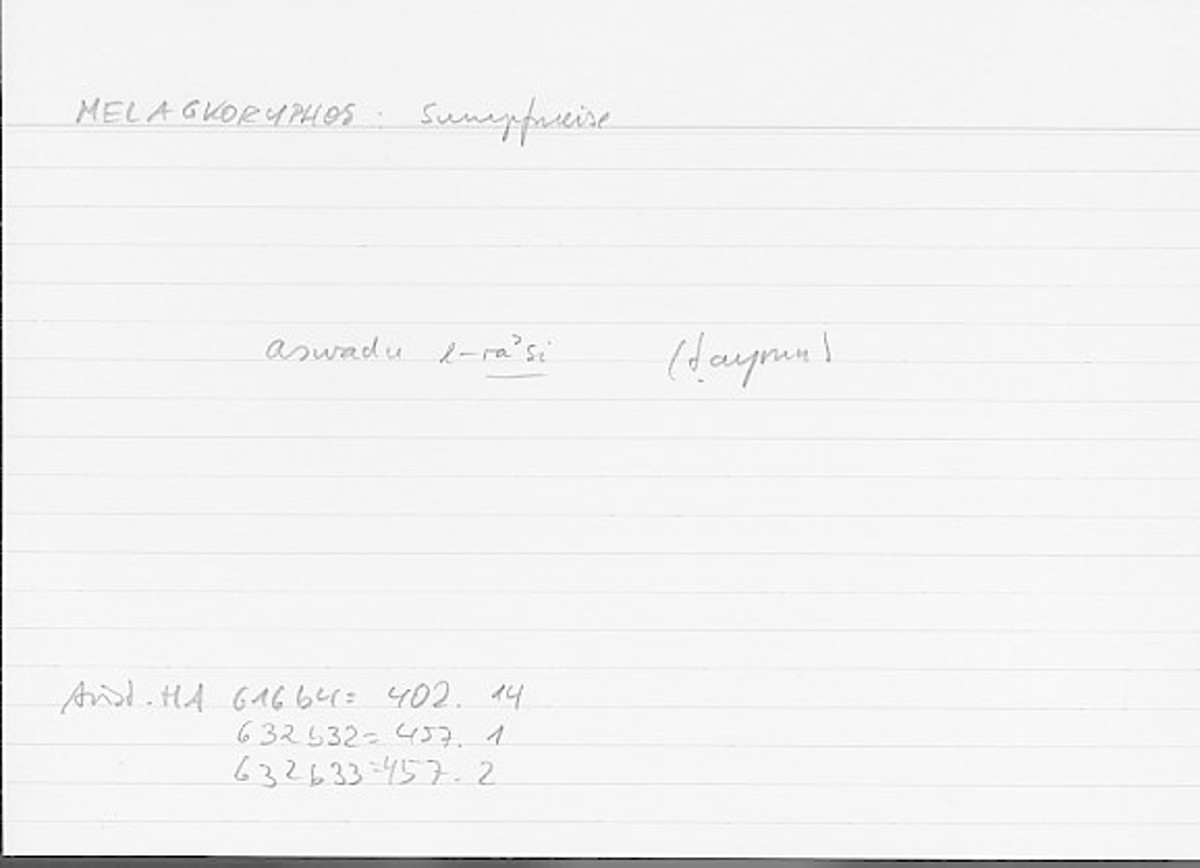 MELAGKORYPHOS : Sumpfmeise
aswadu l-raʾsi (ṭayrun)
Arist. HA 616b4= 402. 14
632b32= 457. 1
632b33=457. 2